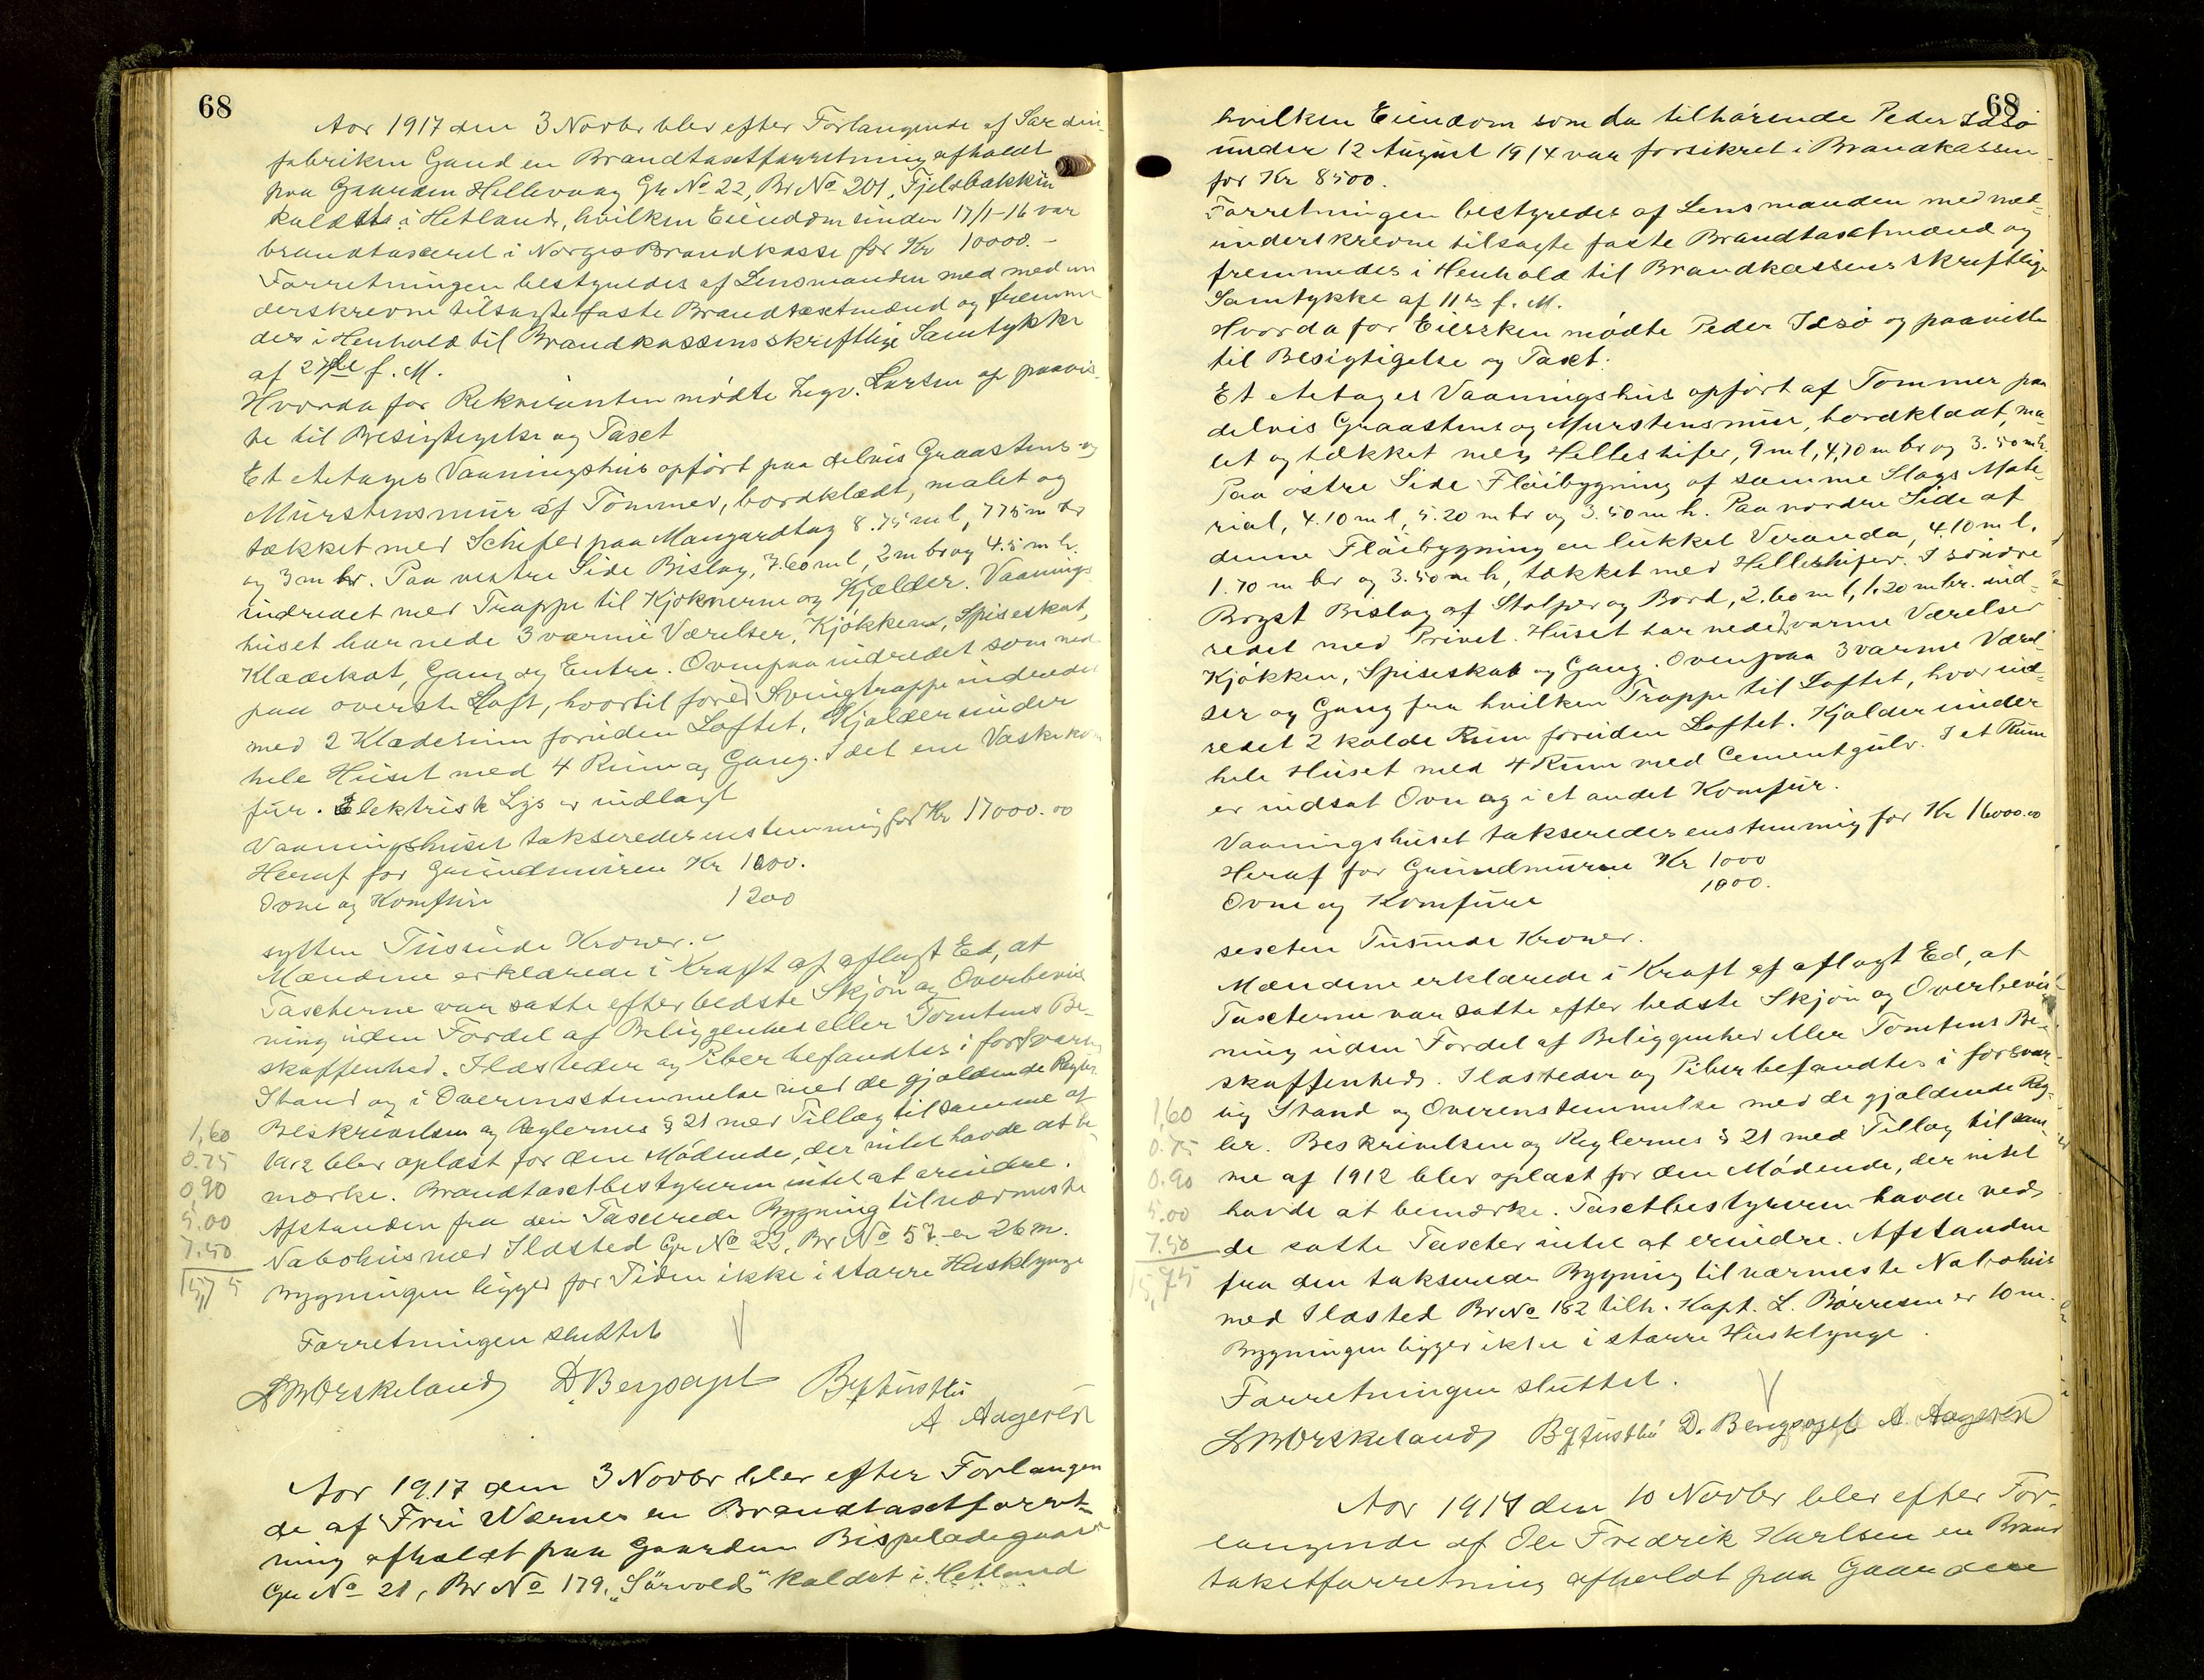 68
Aar 1917 den 3 Novbr blev efter Forlangende af Sardin-
fabriken Gand en Brandtaxtforretning afholdt
paa Gaarden Hillevaag Gr No 22, Br No 201, Fjeldbakken
kaldet i Hetland, hvilken Eiendom under 17/1-16 var
brandtaxeret i Norges Brandkasse for Kr 10000.-
Forretningen bestyredes af Lensmanden med med un
derskrevne tilsagte faste Brandtaxtmænd og fremme
des i Henhold til Brandkassens skriftlige Samtykke
af 27de f. M.
Hvorda for Rekvirenten mødte Ingv. Larsen og paavis-
te til Besigtigelse og Taxt
Et etetages Vaaningshus opført paa delvis Graastens og
Murstensmur af Tømmer, bordklædt, malet og
tækket med Schifer paa Mansardtag 8.75 m l, 7.75 m br
og 3 m hr. Paa vestre Side Bislag, 3.60 m l, 2 m br og 4.5 m h.
indredet med Trappe til Kjøknerne og Kjælder. Vaanings
huset har nede 3 varme Værelser, Kjøkken, Spiseskab,
Klædskot, Gang og Entre. Ovenpaa indredet som ned
paa øverste Loft, hvortil fører Svingtrappe indredet
med 2 Klæderum foruden Loftet. Kjælder under
hele Huset med 4 Rum og Gang. I det ene Vaskekom
fur. Elektrisk Lys er indlagt
Vaaningshuset takseredes enstemmig for Kr 17000.00
Heraf for Grundmuren Kr 1000.
Ovne og Komfure 1200
sytten Tusinde Kroner.
Mændene erklærede i Kraft af aflagt Ed, at
Taxterne var satte efter bedste Skjøn og Overbevis
ning uden Fordel af Beliggenhed eller Tomtens Be-
skaffenhed. Ildsteder og Piber befandtes i forsvarlig
Stand og i Overensstemmelse med de gjældende Regler
Beskrivelsen og Reglernes § 21 med Tillæg til samme af
1912 blev oplæst for den Mødende, der intet havde at be
mærke. Brandtaxtbestyreren intet at erindre.
Afstanden fra den Taxerede Bygning til nærmeste
Nabohus med Ildsted Gr No 22, Br No 57 er 26 m.
Bygningen ligger for Tiden ikke i større Husklynge
Forretningen sluttet
1,60
0.75
0,90
5.00
7.50
15,75
A Aageren
Aar 1917 den 3 Novbr blev efter Forlangen
de af Fru Wærnes en Brandtaxtforret-
ning afholdt paa Gaarden Bispeladegaard
Gr No 21, Br No 179, "Sørvold" kaldet i Hetland
68
hvilken Eiendom som da tilhørende Peder Idsø
under 12 August 1914 var forsikret i Brandkassen
for Kr 8500.
Forretningen bestyredes af Lensmanden med ned-
underskrevne tilsagte faste Brandtaxtmænd og
fremmedes i Henhold til Brandkassens skriftlige
Samtykke af 11te f. M.
Hvorda for Eiersken mødte Peder Idsø og paaviste
til Besigtigelse og Taxt.
Et etetages Vaaningshus opført af Tømmer paa
delvis Graastens og Murstensmur, bordklædt, ma-
let og tækket med Helleskifer, 9 m l, 4,70 m br og 3.50 m h.
Paa østre Side Fløibygning af samme Slags Mate-
rial, 4.10 m l, 5.20 m br og 3.50 m h. Paa nordre Side af
denne Fløibygning en lukket Veranda, 4.10 m l,
1.70 m br og 3.50 m h, tækket med Helleskifer. I søndre
Bryst Bislag af Stolper og Bord, 2.60 m l, 1.20 m br. ind-
redet med Privet. Huset har nede 2 varme Værelser
Kjøkken, Spiseskab og Gang. Ovenpaa 3 varme Værel-
ser og Gang fra hvilken Trappe til Loftet, hvor ind-
redet 2 kolde Rum foruden Loftet. Kjælder under
hele Huset med 4 Rum med Cementgulv. I et Rum
er indsat Ovn og i et andet Komfur.
Vaaningshuset takseredes enstemmig for Kr 16000.00
Heraf for Grundmuren Kr 1000
Ovne og Komfure 1000.
sexten Tusinde Kroner.
Mændene erklærede i Kraft af aflagt Ed, at
Taxterne var satte efter bedste Skjøn og Overbevis-
ning uden Fordel af Beliggenhed eller Tomtens Be-
skaffenhed. Ildsteder og Piber befandtes i forsvar-
lig Stand og Overenstemmelse med de gjældende Reg-
ler. Beskrivelsen og Reglernes § 21 med Tillæg til sam
me af 1912 blev oplæst for den Mødende, der intet
havde at bemærke. Taxtbestyreren havde ved
de satte Taxter intet at erindre. Afstanden
fra den takserede Bygning til nærmeste Nabohus
med Ildsted Br No 182 tilh. Kapt. L. Børresen er 10 m.
Bygningen ligger ikke i større Husklynge.
Forretningen sluttet.
1,60
0.75
0.90
5.00
7.50
15,75
A. Aageren
Aar 1917 den 10 Novbr blev efter For-
langende af Ole Fredrik Karlsen en Brand
taxtforretning afholdt paa Gaarden